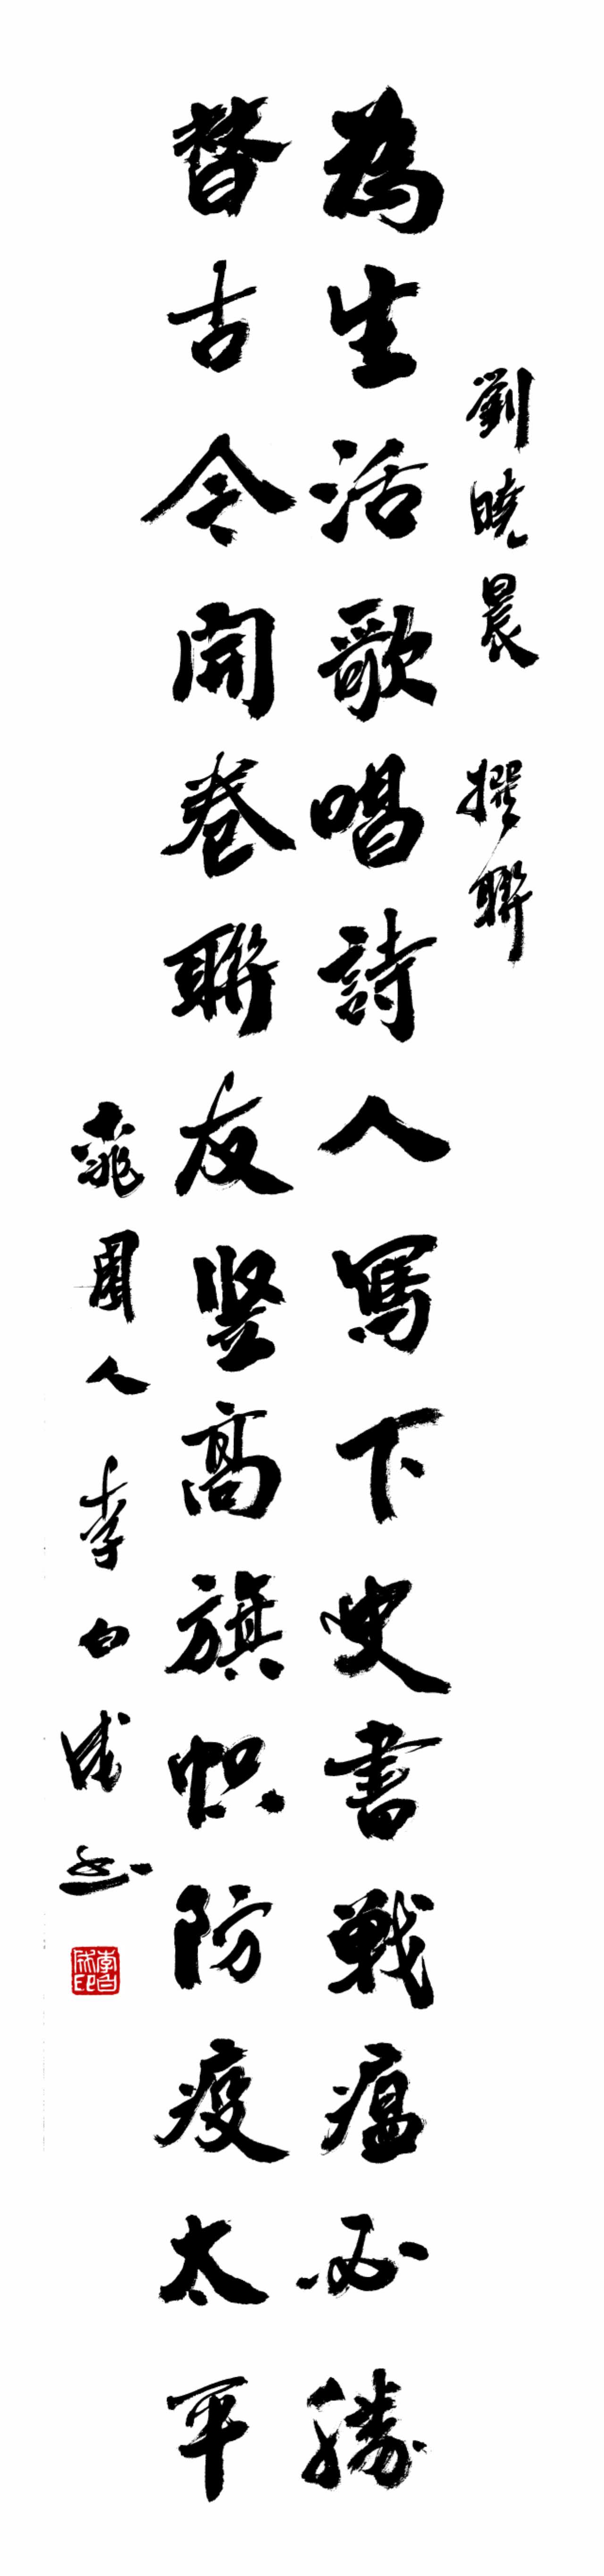 劉曉晨 撰聯
為生活歌唱詩人寫下史書戰瘟必勝
替古今開卷聯友豎高旗帜防疫太平
桃園人 李白成书
李白成印